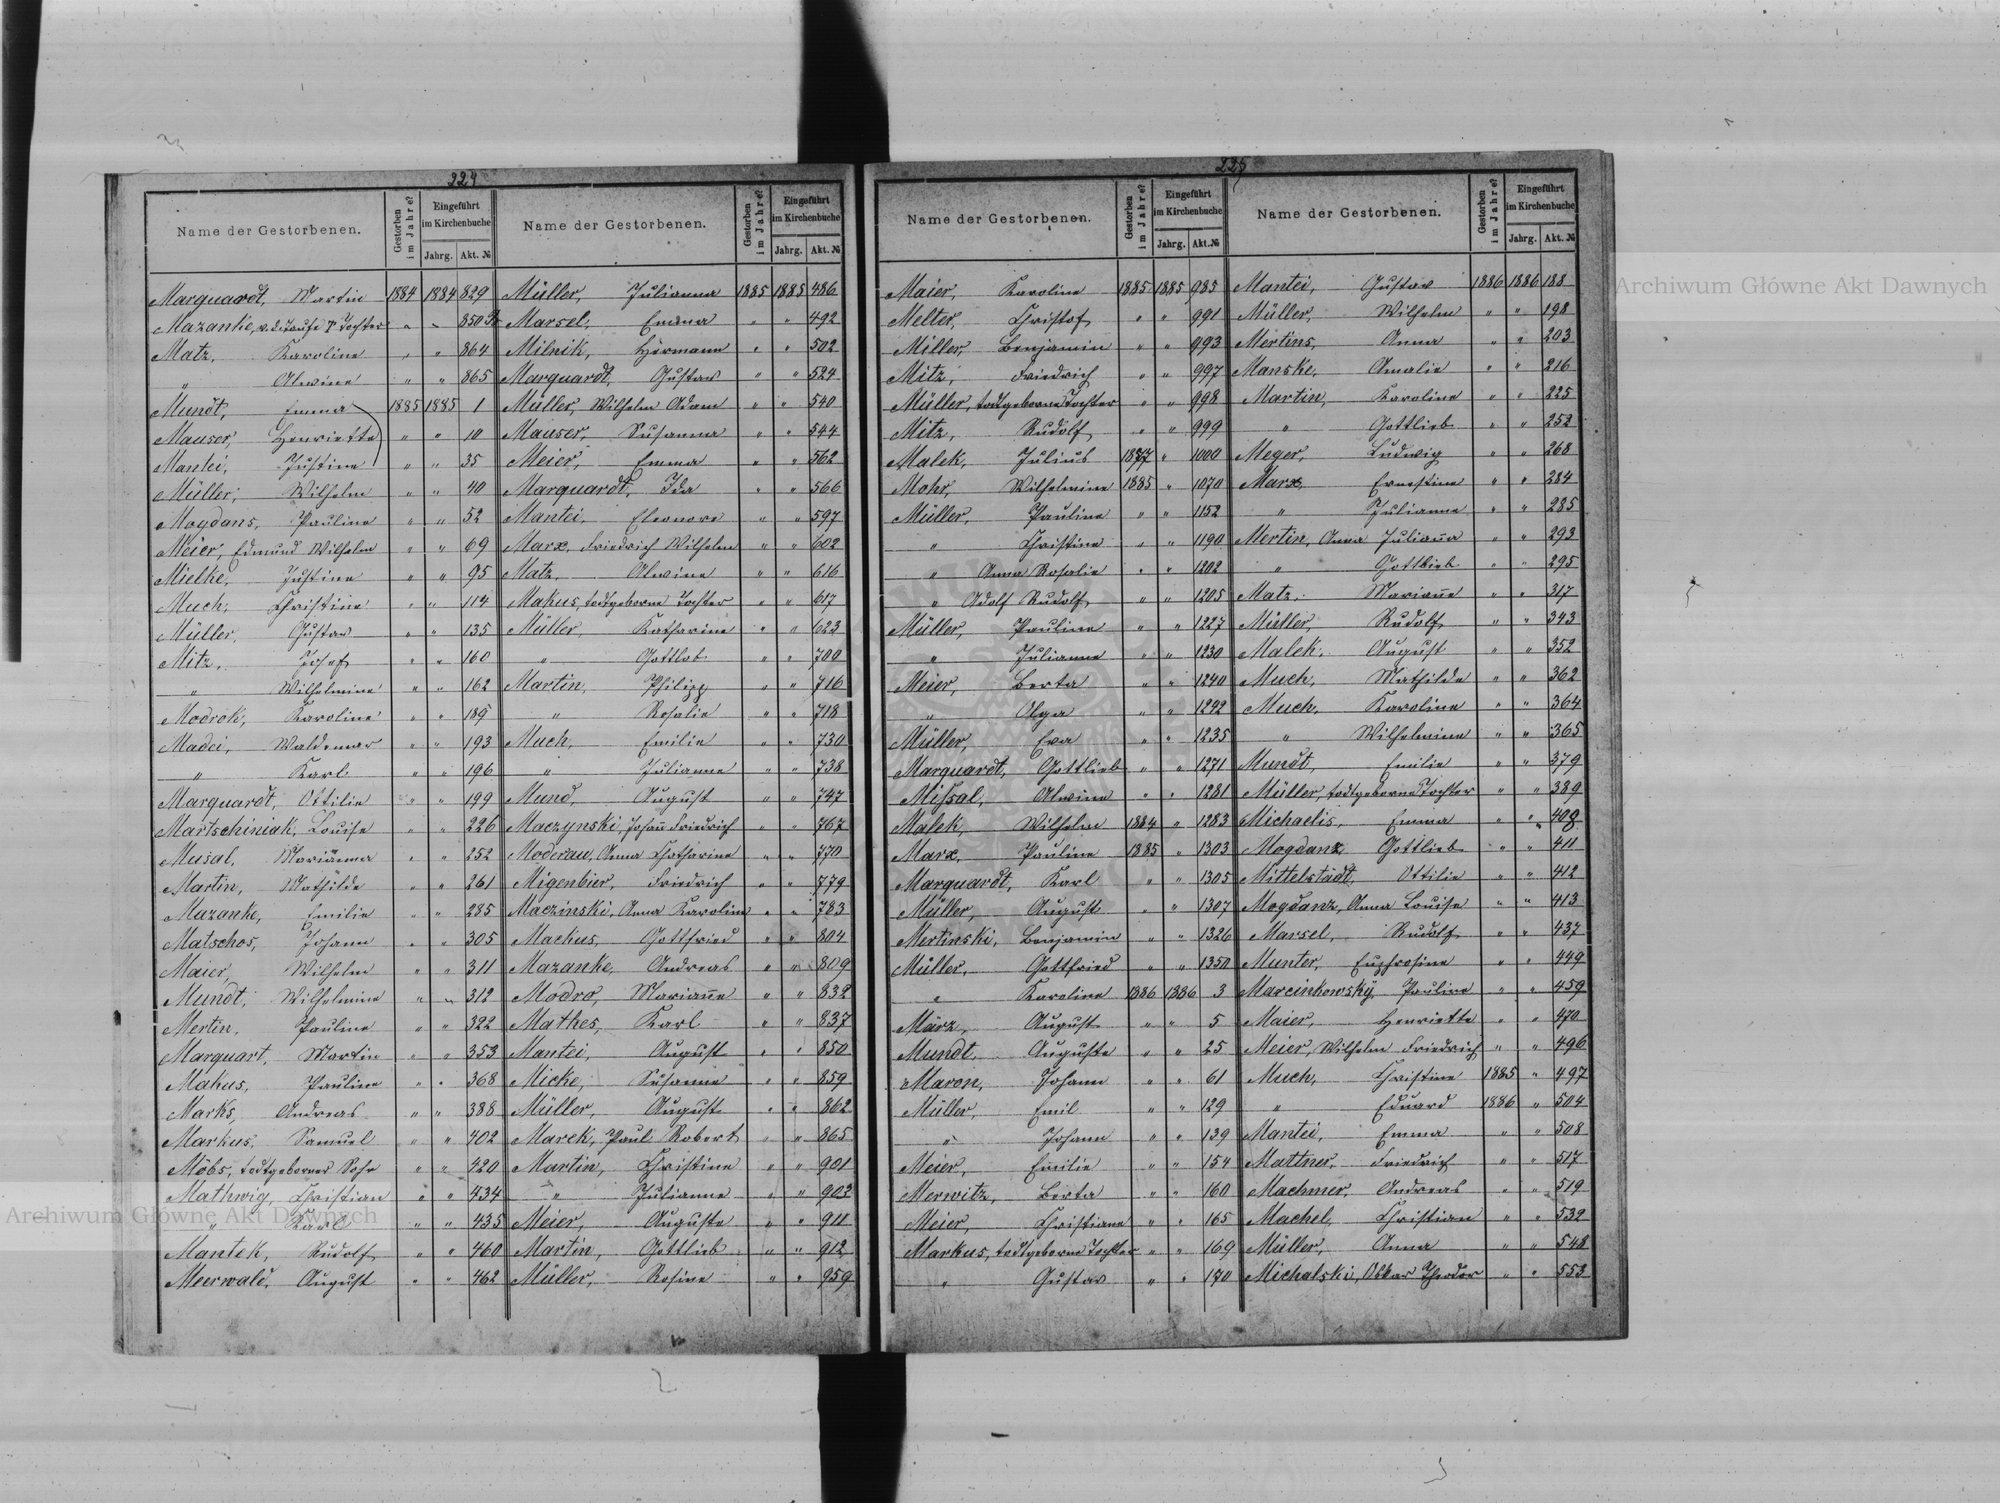 224
Name der Gestorbenen. Gestorben im Jahre? Eingeführt im Kirchenbuche Jahrg. Akt. №
Marquardt, Martin 1884 1884 829
Mazanke, v. d. Taufe † Tochter " " 850
Matz, Karoline " " 864
" Alwine " " 865
Mundt, Emma 1885 1885 1
Mauser, Henriette " " 10
Mantei, Justine " " 35
Müller, Wilhelm " " 40
Mogdans, Pauline " " 52
Meier, Edmund Wilhelm " " 69
Mielke, Justine " " 95
Much, Christine " " 114
Müller, Gustav " " 135
Mitz, Josef " " 160
" Wilhelmine " " 162
Modrok, Karoline " " 189
Madei, Waldemar " " 193
" Karl " " 196
Marquardt, Ottilie " " 199
Martschiniak, Louise " " 226
Musal, Marianna " " 252
Martin, Mathilde " " 261
Mazanke, Emilie " " 285
Matschos, Johann " " 305
Maier, Wilhelm " " 311
Mundt, Wilhelmine " " 312
Mertin, Pauline " " 322
Marquart, Martin " " 353
Makus, Pauline " " 368
Marks, Andreas " " 388
Markus, Samuel " " 402
Möbs, todtgeborner Sohn " " 420
Mathwig, Christian " " 434
" Karl " " 435
Mantek, Rudolf " " 460
Meerwald, August " " 462
Name der Gestorbenen. Gestorben im Jahre? Eingeführt im Kirchenbuche Jahrg. Akt. №
Müller, Julianna 1885 1885 486
Marsel, Emma " " 492
Milnik, Hermann " " 502
Marquardt, Gustav " " 524
Müller, Wilhelm Adam " " 540
Mauser, Susanna " " 544
Meier, Emma " " 562
Marquardt, Ida " " 566
Mantei, Eleonore " " 597
Marx, Friedrich Wilhelm " " 602
Matz, Alwine " " 616
Makus, todtgeborne Tochter " " 617
Müller, Katharine " " 623
" Gottlob " " 700
Martin, Philipp " " 716
" Rosalie " " 718
Much, Emilie " " 730
" Julianne " " 738
Mund, August " " 747
Maczynski, Johann Friedrich " " 767
Moderau, Anna Katharine " " 770
Migenbier, Friedrich " " 779
Maczinski, Anna Karoline " " 783
Mackus, Gottfried " " 804
Mazanke, Andreas " " 809
Modro, Marianne " " 832
Mathes, Karl " " 837
Mantei, August " " 850
Micke, Susanne " " 859
Müller, August " " 862
Marek, Paul Robert " " 865
Martin, Christine " " 901
" Julianne " " 903
Meier, Auguste " " 911
Martin, Gottlieb " " 912
Müller, Rosine " " 959
225
Name der Gestorbenen. Gestorben im Jahre? Eingeführt im Kirchenbuche Jahrg. Akt. №
Maier, Karoline 1885 1885 985
Melter, Christof " " 991
Miller, Benjamin " " 993
Mitz, Friedrich " " 997
Müller, todtgeborne Tochter " " 998
Mitz, Rudolf " " 999
Malek, Julius 1877 " 1000
Mohr, Wilhelmine 1885 " 1070
Müller, Pauline " " 1152
" Christine " " 1190
" Anna Rosalie " " 1202
" Adolf Rudolf " " 1205
Müller, Pauline " " 1227
" Julianne " " 1230
Meier, Berta " " 1240
" Olga " " 1242
Müller, Eva " " 1235
Marquardt, Gottlieb " " 1271
Missal, Alwine " " 1281
Malek, Wilhelm 1884 " 1283
Marx, Pauline 1885 " 1303
Marquardt, Karl " " 1305
Müller, August " " 1307
Mertinski, Benjamin " " 1326
Müller, Gottfried " " 1350
" Karoline 1886 1886 3
März, August " " 5
Mundt, Auguste " " 25
Maron, Johann " " 61
Müller, Emil " " 129
" Johann " " 139
Meier, Emilie " " 154
Merwitz, Berta " " 160
Meier, Christiane " " 165
Markus, todtgeborne Tochter " " 169
" Gustav " " 170
Name der Gestorbenen. Gestorben im Jahre? Eingeführt im Kirchenbuche Jahrg. Akt. №
Mantei, Gustav 1886 1886 188
Müller, Wilhelm " " 198
Mertins, Anna " " 203
Manske, Amalie " " 216
Martin, Karoline " " 225
" Gottlieb " " 252
Meger, Ludwig " " 268
Marx, Ernestine " " 284
" Julianne " " 285
Mertin, Anna Julianna " " 293
" Gottlieb " " 295
Matz, Marianne " " 317
Müller, Rudolf " " 343
Malek, August " " 352
Much, Mathilde " " 362
Much, Karoline " " 364
" Wilhelmine " " 365
Mundt, Emilie " " 379
Müller, todtgeborne Tochter " " 389
Michaelis, Emma " " 408
Mogdanz, Gottlieb " " 411
Mittelstädt, Ottilie " " 412
Mogdanz, Anna Louise " " 413
Marsel, Rudolf " " 437
Munter, Euphrosine " " 449
Marcinkowsky, Pauline " " 459
Maier, Henriette " " 470
Meier, Wilhelm Friedrich " " 496
Much, Christine 1885 " 497
" Eduard 1886 " 504
Mantei, Emma " " 508
Mattner, Friedrich " " 517
Machmer, Andreas " " 519
Machel, Christian " " 532
Müller, Anna " " 548
Michalski, Oskar Theodor " " 553
Archiwum Główne Akt Dawnych
Archiwum Główne Akt Dawnych